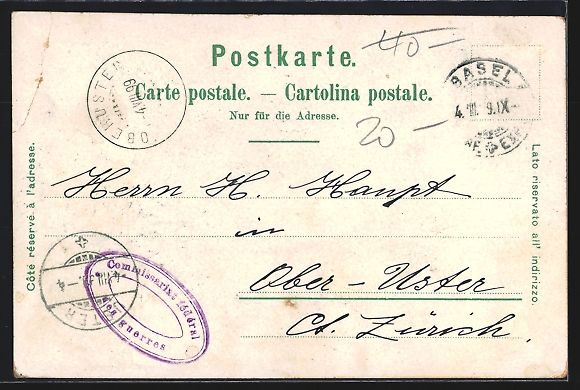 Postkarte.
40-
Carte postale. — Cartolina postale.
Nur für die Adresse.
20-
OBERUSTER
BASEL
4. III. 9. IX-
Côté réservé à l'adresse.
Lato riservato all' indirizzo.
Herrn H. Haupt
in
Ober-Uster
Ct. Zürich.
Commissariat fédéral
des guerres